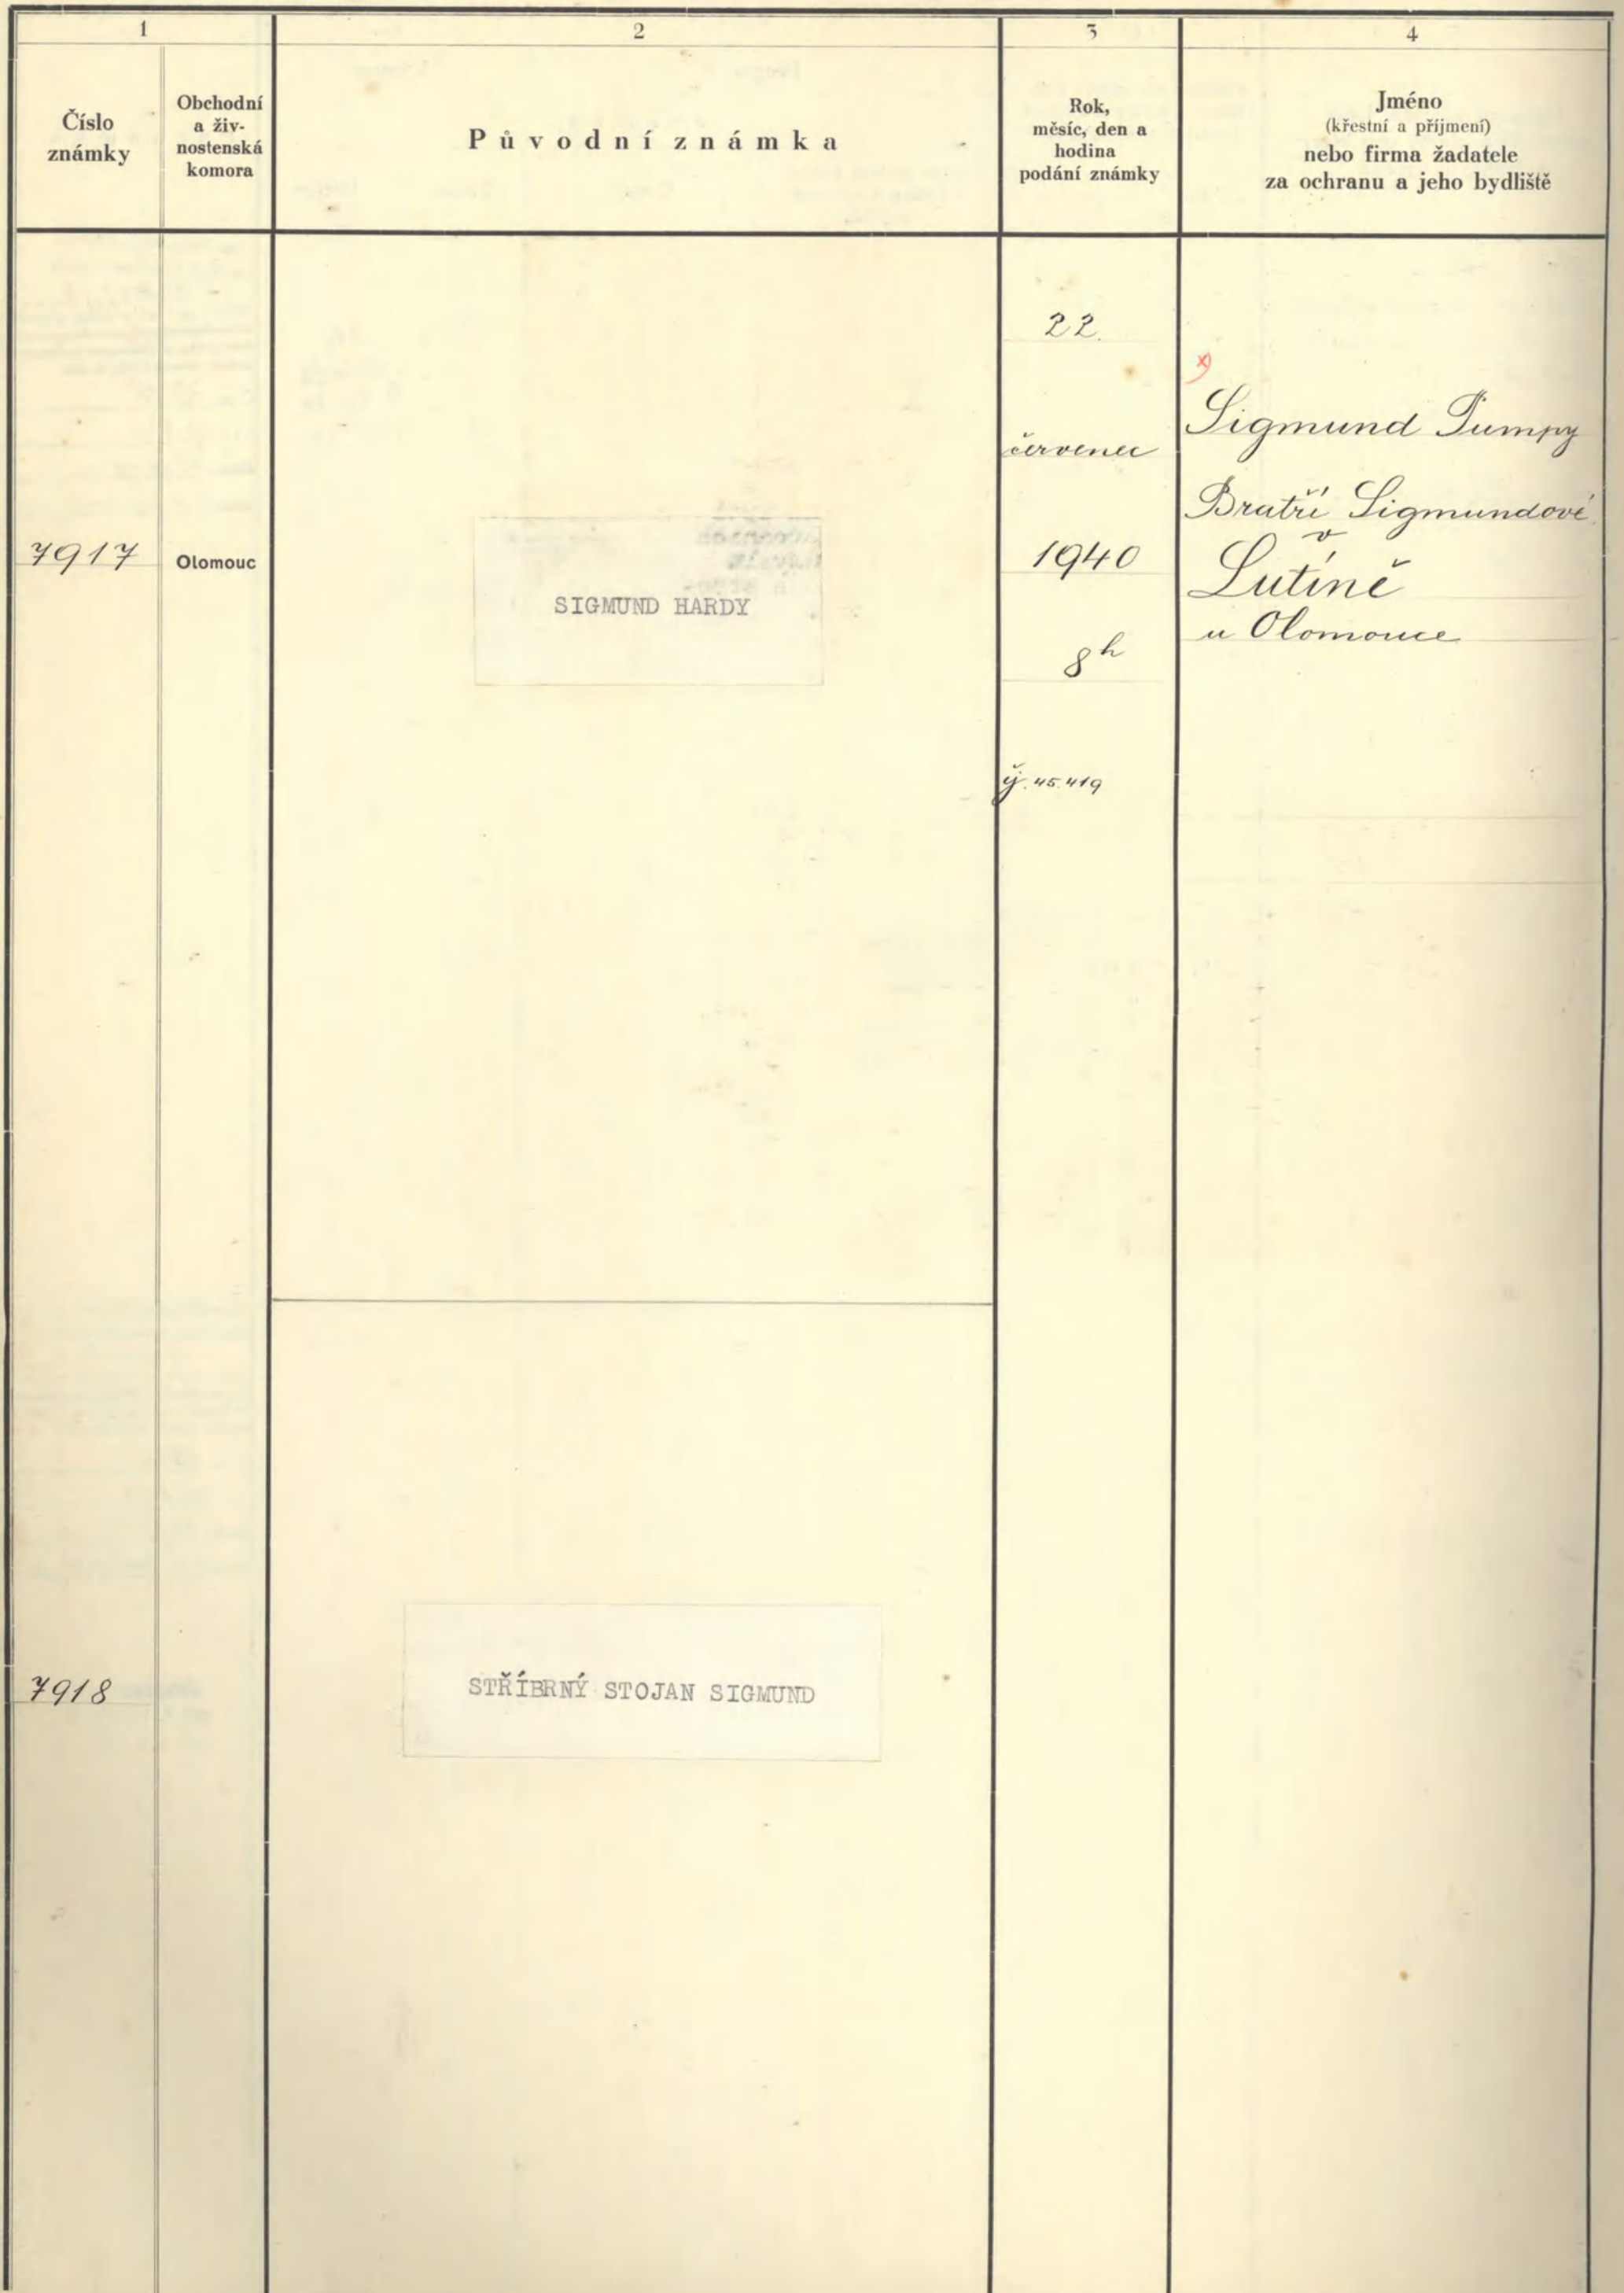 1
2
3
4
Číslo
známky
Obchodní
a živ-
nostenská
komora
Původní známka
Rok,
měsíc, den a
hodina
podání známky
Jméno
(křestní a příjmení)
nebo firma žadatele
za ochranu a jeho bydliště
7917
Olomouc
SIGMUND HARDY
22.
červenec
1940
8h
čj. 45.419
x)
Sigmund Pumpy
Bratři Sigmundové
v
Lutíně
u Olomouce
7918
STŘÍBRNÝ STOJAN SIGMUND